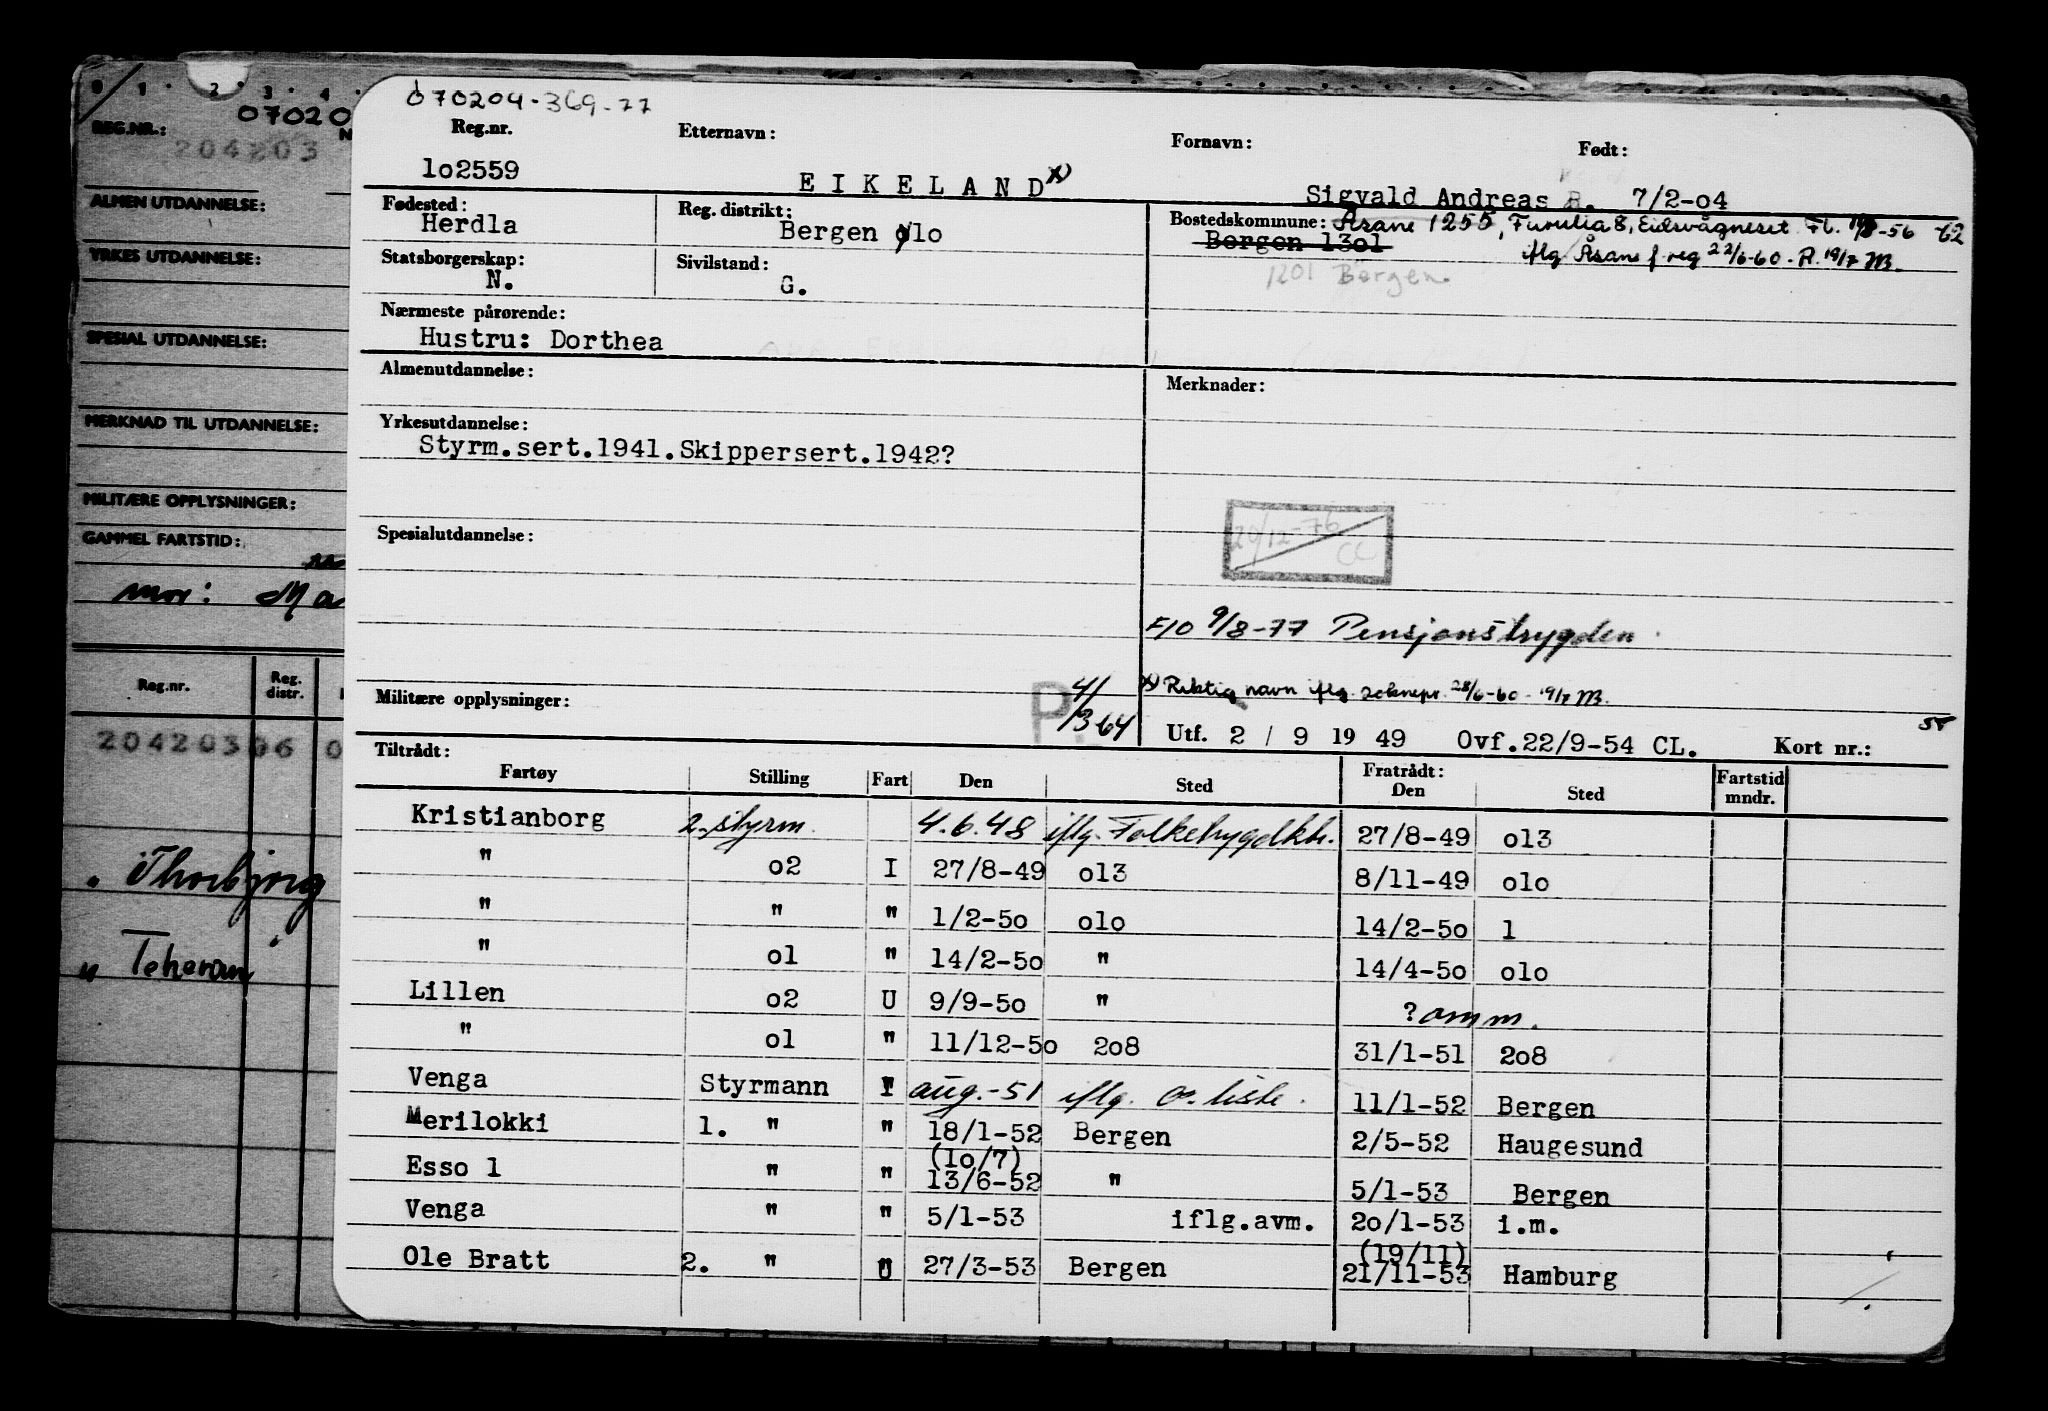 0 1 2 3 4
07020
REG.NR.: N
204203
ALMEN UTDANNELSE:
YRKES UTDANNELSE:
SPESIAL UTDANNELSE:
MERKNAD TIL UTDANNELSE:
MILITÆRE OPPLYSNINGER:
GAMMEL FARTSTID:
mor: Ma
Reg.nr. Reg. distr.
204203 06 0
" Thorbjørg
" Teheran
070204-369-77
Reg.nr. Etternavn: Fornavn: Født:
lo2559 E I K E L A N D x) Sigvald Andreas B. 7/2-o4
Fødested: Reg. distrikt: Bostedskommune: Åsane 1255, Furulia 8, Eidsvågneset Fl. 19/8-56 62
Herdla Bergen olo Bergen 13ol iflg Åsane f.reg 22/6-60. R. 19/7 M.
Statsborgerskap: Sivilstand: 1201 Bergen.
N. G.
Nærmeste pårørende:
Hustru: Dorthea
Almenutdannelse: Merknader:
Yrkesutdannelse:
Styrm.sert.1941.Skippersert.1942?
20/12-76
CC
Spesialutdannelse:
F10 9/8-77 Pensjonstrygden.
x) Riktig navn iflg. 28/6-60 - 19/7 M.
Militære opplysninger: P. 4/3 64
Utf. 2 / 9 19 49 Ovf.22/9-54 CL. Kort nr.:
Tiltrådt: Fratrådt:
Fartøy Stilling Fart Den Sted Den Sted Fartstid mndr.
Kristianborg 2. styrm. 4.6.48 iflg. Folketrygdktr. 27/8-49 ol3
" o2 I 27/8-49 ol3 8/11-49 olo
" " " 1/2-5o olo 14/2-5o l
" ol " 14/2-5o " 14/4-5o olo
Lillen o2 U 9/9-5o " ? omm.
" ol " 11/12-5o 2o8 31/1-51 2o8
Venga Styrmann I aug.-51 iflg. liste. 11/1-52 Bergen
Merilokki 1. " " 18/1-52 Bergen 2/5-52 Haugesund
(lo/7)
Esso 1 " " 13/6-52 " 5/1-53 Bergen
Venga " " 5/1-53 iflg.avm. 2o/1-53 i.m.
(19/11)
Ole Bratt 2. " U 27/3-53 Bergen 21/11-53 Hamburg